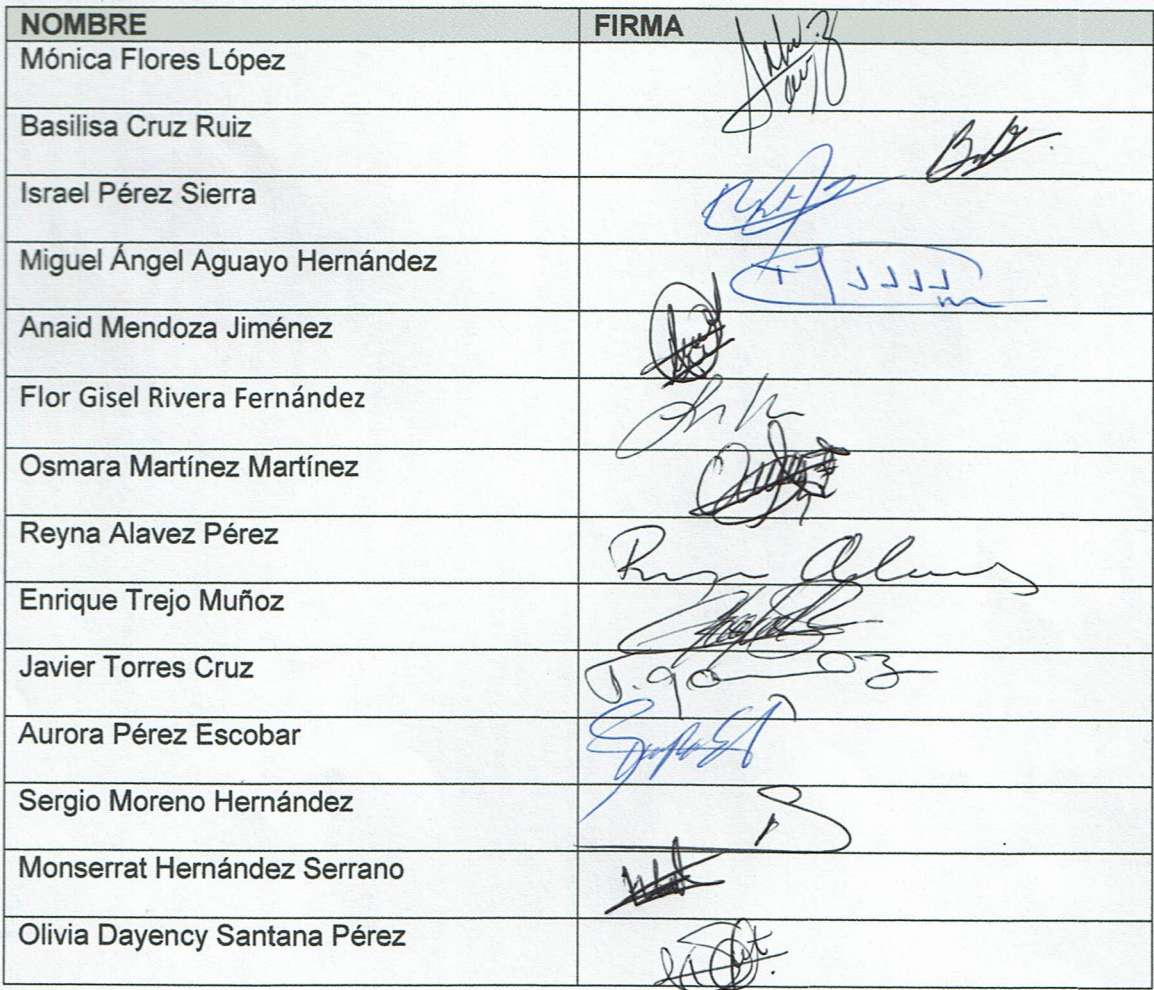 NOMBRE FIRMA
Mónica Flores López
Basilisa Cruz Ruiz
Israel Pérez Sierra
Miguel Ángel Aguayo Hernández
Anaid Mendoza Jiménez
Flor Gisel Rivera Fernández
Osmara Martínez Martínez
Reyna Alavez Pérez
Enrique Trejo Muñoz
Javier Torres Cruz
Aurora Pérez Escobar
Sergio Moreno Hernández
Monserrat Hernández Serrano
Olivia Dayency Santana Pérez